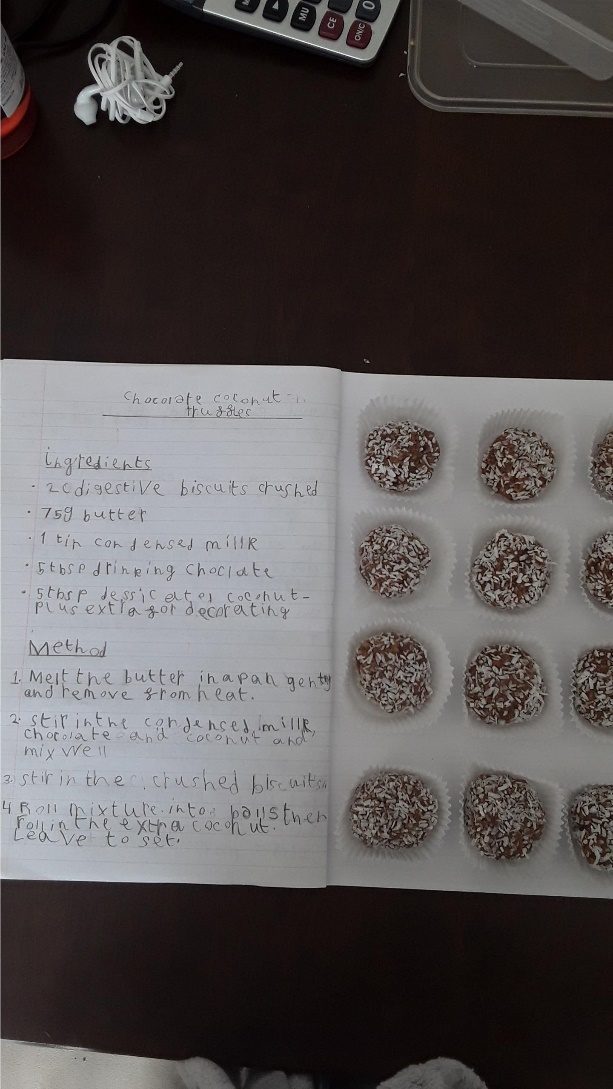 MU
CE
0
ON/C
Chocolate coconut
truffles
ingredients
· 20 digestive biscuits crushed
· 75g butter
· 1 tin condensed millk
· 5tbsp drinking choclate
· 5tbsp dessicated coconut-
plus extra for decorating
Method
1. Melt the butter in a pan gently
and remove from heat.
2. stir in the condensed millk,
chocolate and coconut and
mix well
3. stir in the crushed biscuits.
4 Roll mixture into balls then
roll in the extra coconut.
Leave to set.